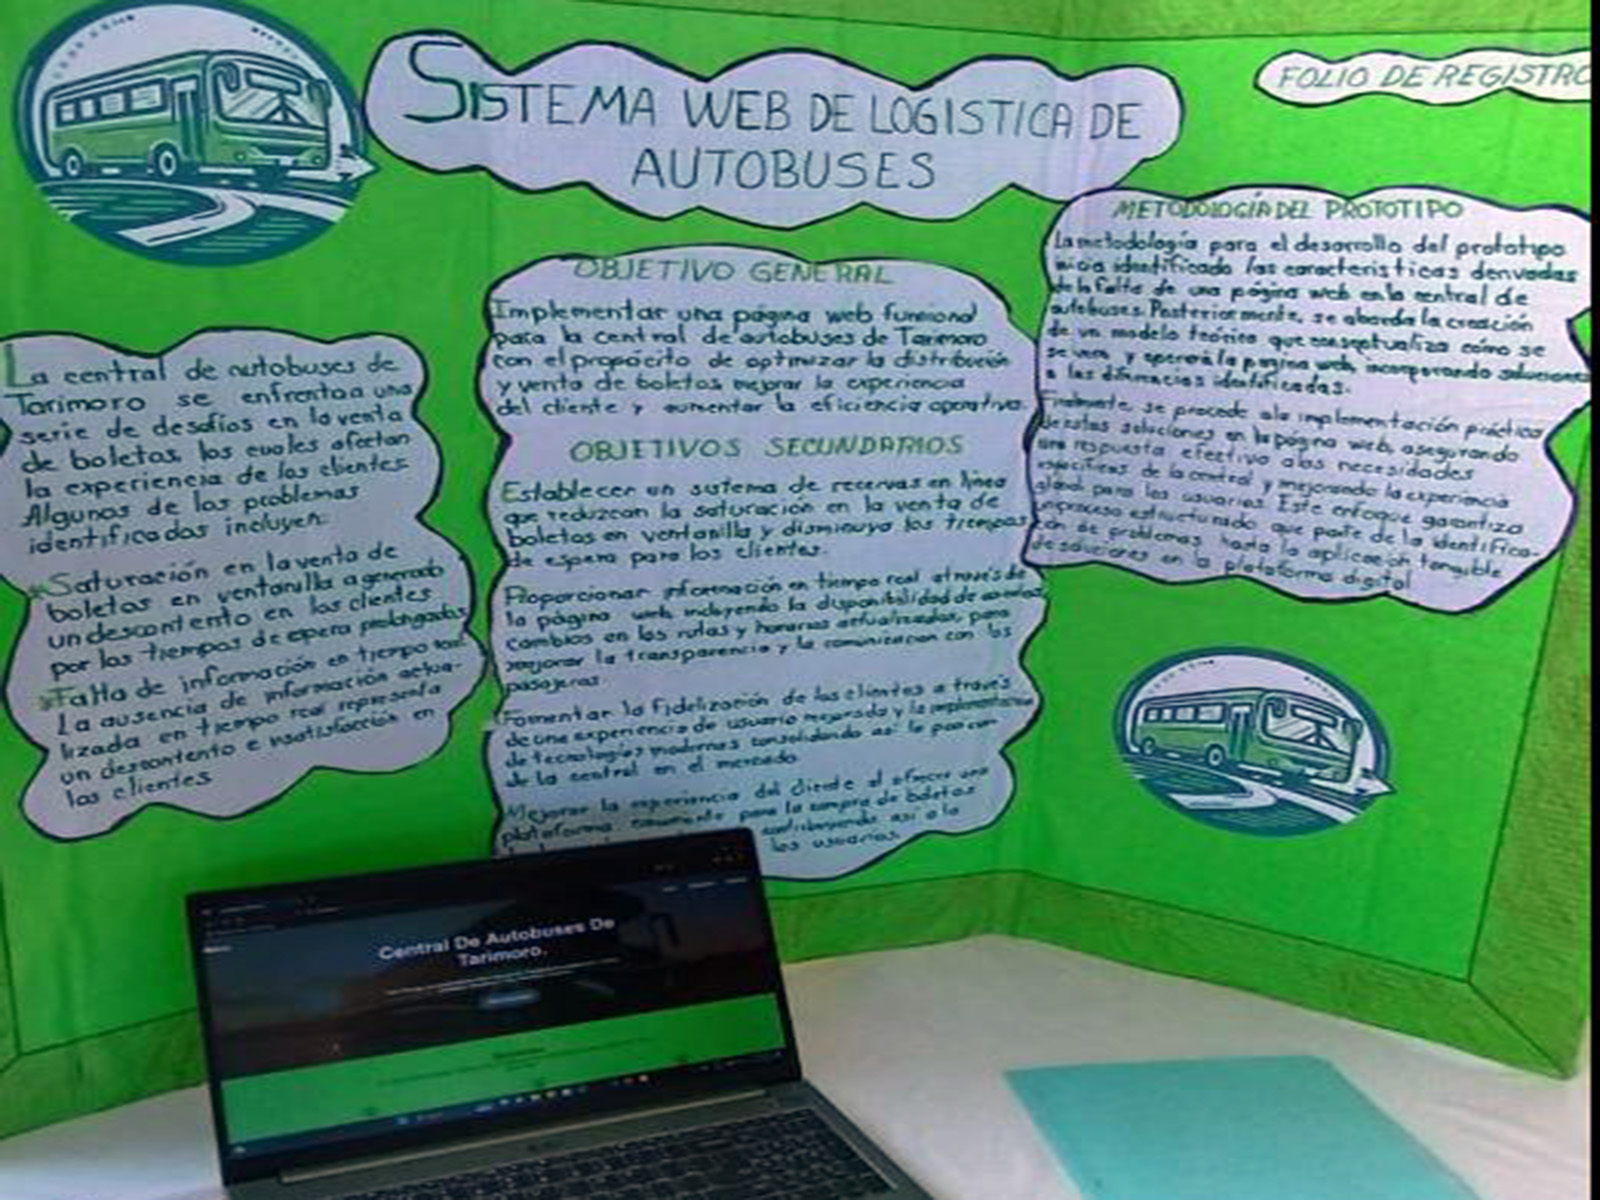 SISTEMA WEB DE LOGISTICA DE
AUTOBUSES
FOLIO DE REGISTRO
La central de autobuses de
Tarimoro se enfrenta a una
serie de desafíos en la venta
de boletos, los cuales afectan
la experiencia de los clientes.
Algunos de los problemas
identificados incluyen:
*Saturación en la venta de
boletos en ventanilla a generado
un descontento en los clientes
por los tiempos de espera prolongados
*Falta de información en tiempo real
La ausencia de información actua-
lizada en tiempo real representa
un descontento e insatisfacción en
los clientes
OBJETIVO GENERAL
Implementar una página web funcional
para la central de autobuses de Tarimoro
con el propósito de optimizar la distribución
y venta de boletos mejorar la experiencia
del cliente y aumentar la eficiencia operativa.
OBJETIVOS SECUNDARIOS
Establecer un sistema de reservas en línea
que reduzcan la saturación en la venta de
boletos en ventanilla y disminuya los tiempos
de espera para los clientes.
Proporcionar información en tiempo real através de
la página web incluyendo la disponibilidad de
cambios en las rutas y horarios actualizados, para
mejorar la transparencia y la comunicación con los
pasajeros
Fomentar la fidelización de los clientes a través
de una experiencia de usuario mejorada y la implementación
de tecnologías modernas consolidando así la
de la central en el mercado.
Mejorar la experiencia del cliente al ofrecer una
plataforma para la compra de boletos
contribuyendo así a la
los usuarios.
METODOLOGÍA DEL PROTOTIPO
La metodología para el desarrollo del prototipo
inicia identificado las características derivadas
de la falta de una página web en la central de
autobuses. Posteriormente, se aborda la creación
de un modelo teórico que conceptualiza cómo se
se vera y operará la pagina web, incorporando soluciones
a las diferencias identificadas.
Finalmente, se procede ala implementación práctica
de estas soluciones en la página web, asegurando
una respuesta efectiva alas necesidades
específicas de la central y mejorando la experiencia
global para los usuarios. Este enfoque garantiza
un proceso estructurado que parte de la identifica-
ción de problemas hasta la aplicación tangible
de soluciones en la plataforma digital
Central De Autobuses De
Tarimoro.